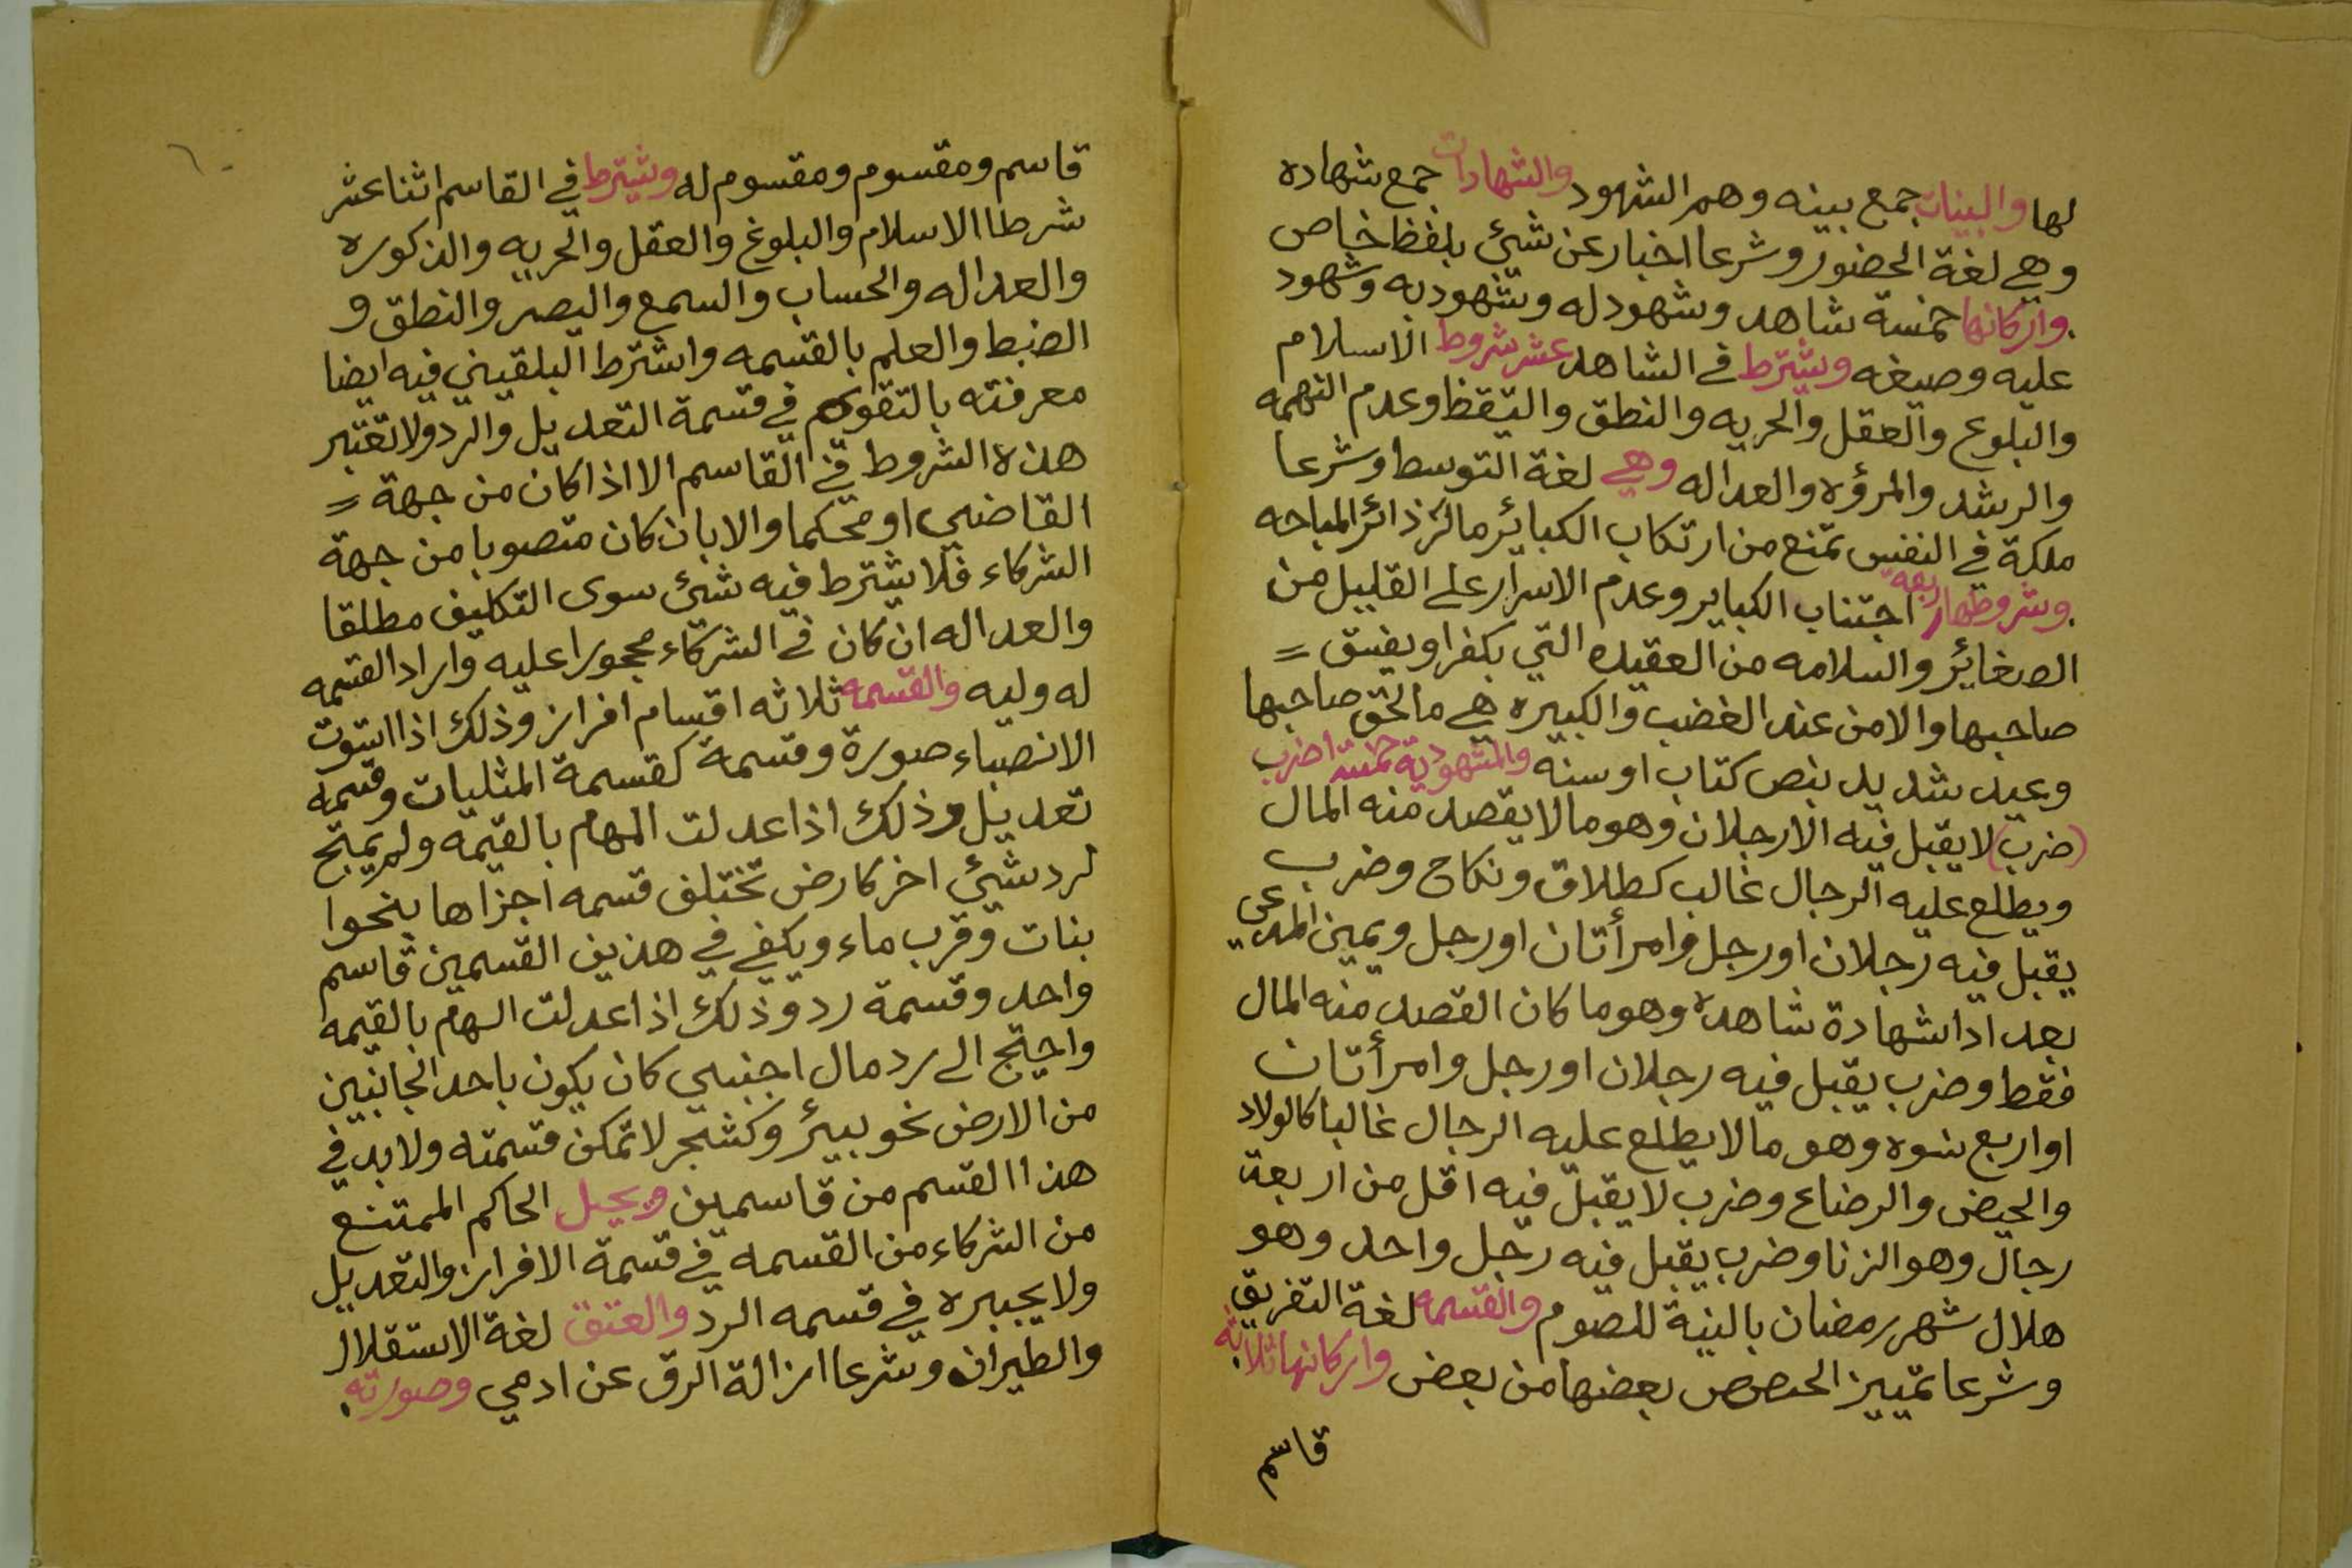 لها والبينات جمع بينه وهم الشهود والشهادات جمع شهاده
وهي لغة الحضور وشرعا اخبار عن شئ بلفظ خاص
واركانها خمسة شاهد وشهود له وشهود به وشهود
عليه وصيغه ويشترط في الشاهد عشر شروط الاسلام
والبلوغ والعقل والحريه والنطق والتيقظ وعدم التهمه
والرشد والمرؤه والعداله وهي لغة التوسط وشرعا
ملكة في النفس تمنع من ارتكاب الكبائر المباحه
وشروطها اربعه اجتناب الكباير وعدم الاسرار على القليل من
الصغائر والسلامه من العقيده التي بكفر او يفسق =
صاحبها والامن عند الغضب والكبيره هي مالحق صاحبها
وعيد شديد بنص كتاب او سنه والمشهود به خمسة اضرب
(ضرب) لا يقبل فيه الا رجلان وهو مالا يقصد منه المال
ويطلع عليه الرجال غالب كطلاق ونكاح وضرب
يقبل فيه رجلان او رجل وامرأتان او رجل ويمين المدعي
بعد ادا شهادة شاهده وهو ما كان القصد منه المال
فقط وضرب يقبل فيه رجلان او رجل وامرأتان
او اربع نسوه وهو مالا يطلع عليه الرجال غالبا كالولاد
والحيض والرضاع وضرب لا يقبل فيه اقل من اربعة
رجال وهو الزنا وضرب يقبل فيه رجل واحد وهو
هلال شهر رمضان بالنية للصوم والقسمه لغة التفريق
وشرعا تمييز الحصص بعضها من بعض واركانها ثلاثة
قاسم
قاسم ومقسوم ومقسوم له ويشترط في القاسم اثنا عشر
شرطا الاسلام والبلوغ والعقل والحريه والذكوره
والعداله والحساب والسمع والبصر والنطق و
الضبط والعلم بالقسمه واشترط البلقيني فيه ايضا
معرفته بالتقويم في قسمة التعديل والرد ولا تعتبر
هذه الشروط في القاسم الا اذا كان من جهة =
القاضي او محكما والا بان كان منصوبا من جهة
الشركاء فلا يشترط فيه شئ سوى التكليف مطلقا
والعداله ان كان في الشركاء محجورا عليه واراد القسمه
له وليه والقسمه ثلاثه اقسام افراز وذلك اذا استوت
الانصباء صورة وقسمة كقسمة المثليات وقسمة
تعديل وذلك اذا عدلت المهام بالقيمه ولم يحتج
لرد شئ اخر كارض تختلف قسمه اجزاها بنحوا
بنات وقرب ماء ويكفي في هذين القسمين قاسم
واحد وقسمة رد وذلك اذا عدلت السهام بالقيمه
واحتج الى رد مال اجنبي كان يكون باحد الجانبين
من الارض نحو بيئر وكشجر لا تمكن قسمته ولا بد في
هذا القسم من قاسمين ويجبل الحاكم الممتنع
من الشركاء من القسمه في قسمة الافراز والتعديل
ولا يجبره في قسمه الرد والعتق لغة الاستقلال
والطيران وشرعا ازالة الرق عن ادمي وصورته